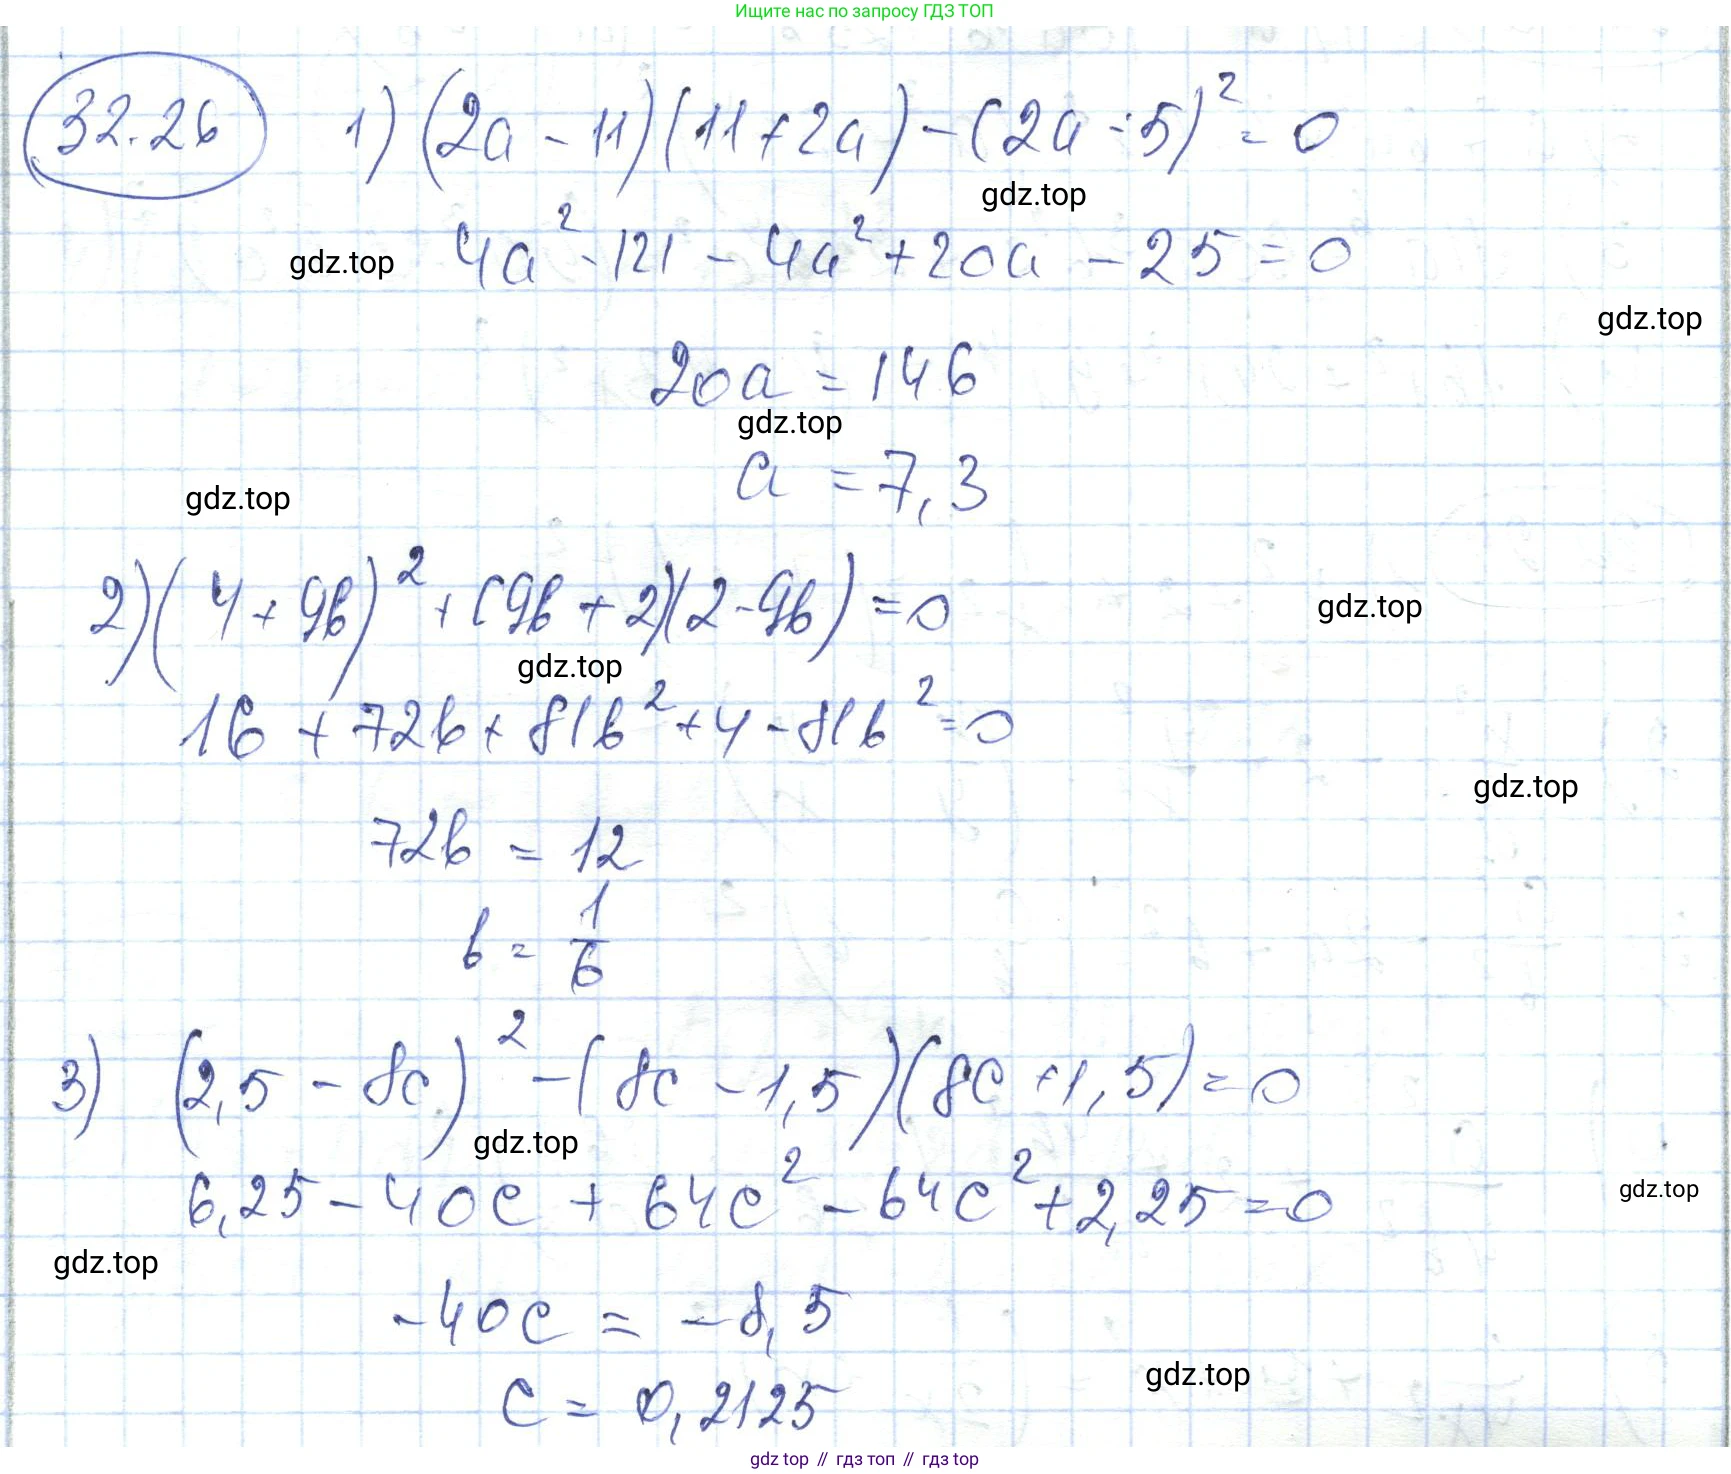 Ищите нас по запросу ГДЗ ТОП
32.26 1) (2a - 11)(11 + 2a) - (2a - 5)² = 0
gdz.top
4a² - 121 - 4a² + 20a - 25 = 0
gdz.top
gdz.top
20a = 146
gdz.top
a = 7,3
gdz.top
2) (4 + 9b)² + (9b + 2)(2 - 9b) = 0
gdz.top
gdz.top
16 + 72b + 81b² + 4 - 81b² = 0
gdz.top
72b = 12
b = 1/6
3) (2,5 - 8c)² - (8c - 1,5)(8c + 1,5) = 0
gdz.top
6,25 - 40c + 64c² - 64c² + 2,25 = 0
gdz.top
gdz.top
-40c = -8,5
gdz.top
c = 0,2125
gdz top // гдз топ // гдз top